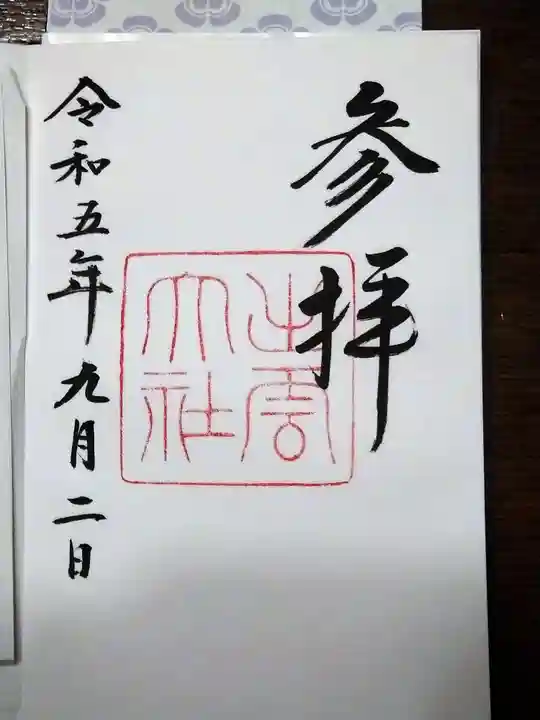 参拝
出雲
大社
令和五年九月二日